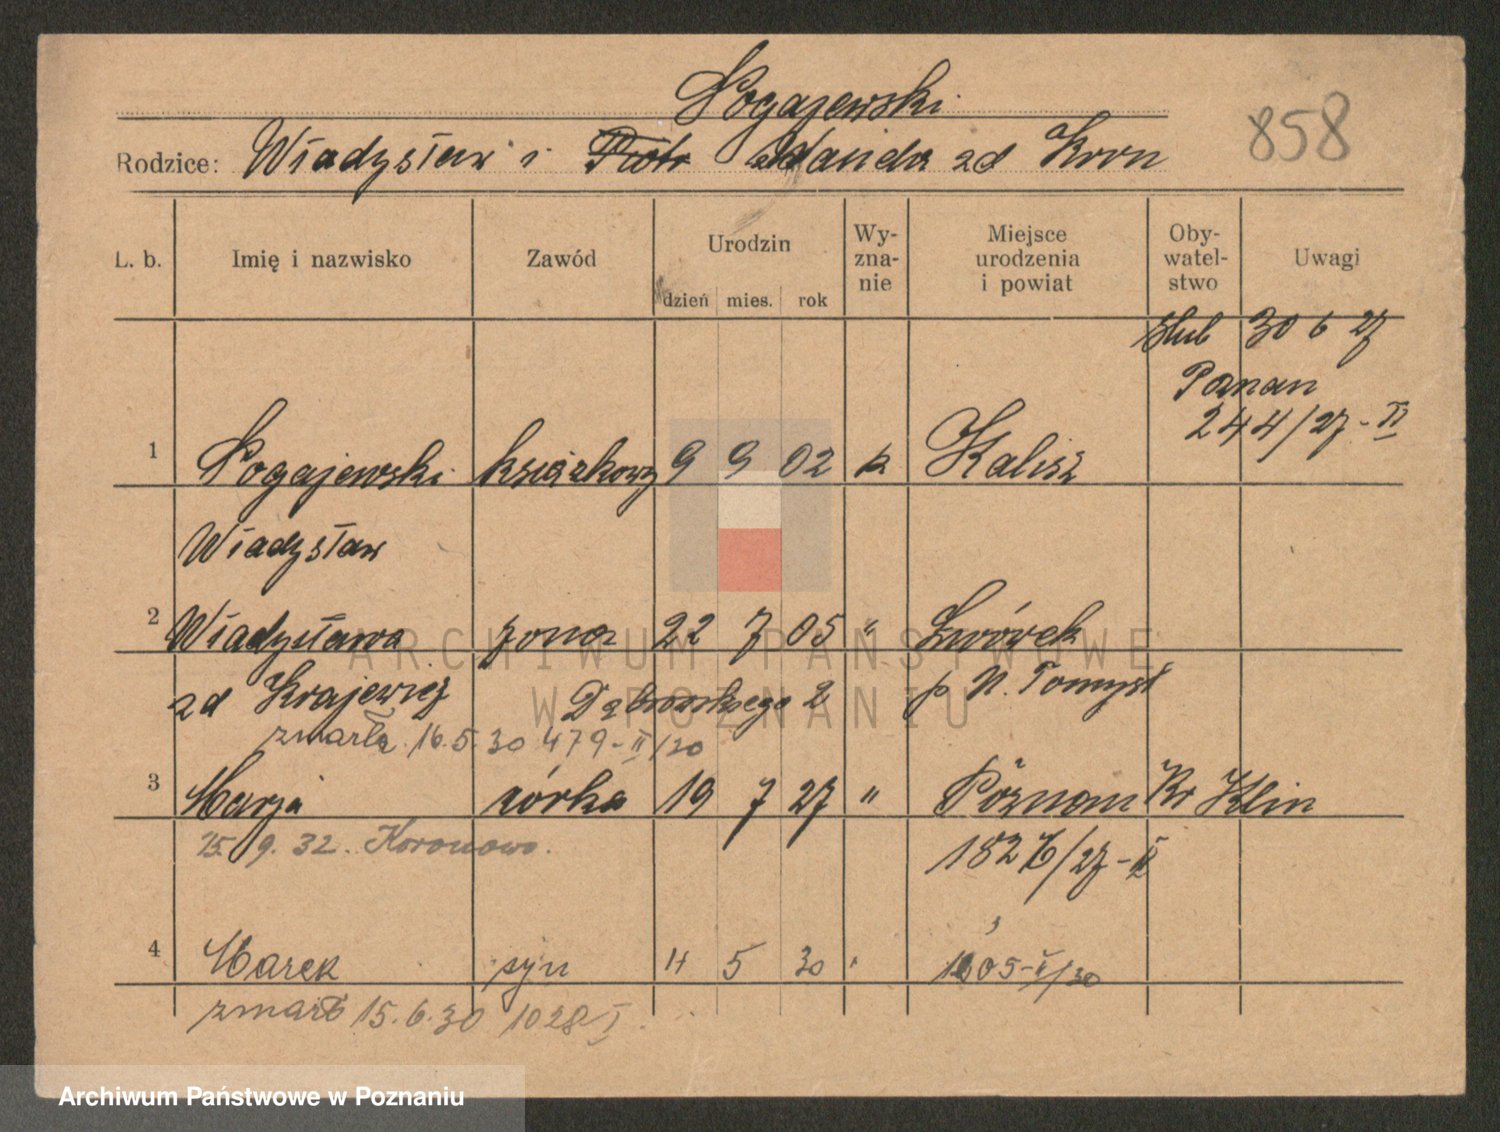 Pogajewski
858
Rodzice: Władysław i Piotr Wanda zd Kron
L. b. Imię i nazwisko Zawód Urodzin dzień mies. rok Wy-zna-nie Miejsce urodzenia i powiat Oby-watel-stwo Uwagi
ślub 30 6 27
Poznan
244/27-II
1 Pogajewski książkowy 9 9 02 k Kalisz
Władysław
2 Władysława żona 22 7 05 " Lwówek
ARCHIWUM PAŃSTWOWE
zd Krajewicz Dąbrowskiego 2 p N. Tomyśl
W POZNANIU
zmarła 16.5.30 479-II/30
3 Marja córka 19 7 27 " Poznań Kr Klin
15.9.32. Koronowo. 1826/27-II
4 Marek syn 11 5 30 " 1205-II/30
zmarł 15.6.30 1028 I
Archiwum Państwowe w Poznaniu